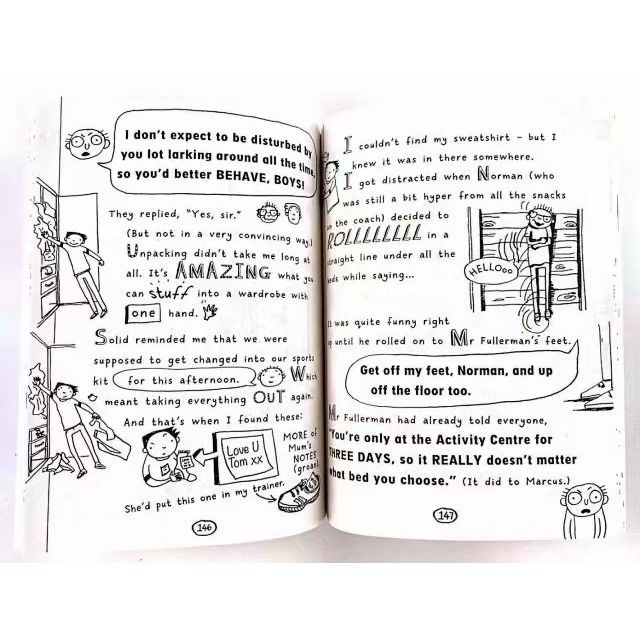 I don't expect to be disturbed by
you lot larking around all the time,
so you'd better BEHAVE, BOYS!
They replied, "Yes, sir."
(But not in a very convincing way.)
Unpacking didn't take me long at
all. It's AMAZING what you
can stuff into a wardrobe with
one hand.
Solid reminded me that we were
supposed to get changed into our sports
kit for this afternoon. Which
meant taking everything OUT again.
And that's when I found these:
Love U
Tom xx
MORE of
Mum's
NOTES
(groan)
She'd put this one in my trainer.
146
I couldn't find my sweatshirt – but I
knew it was in there somewhere.
I got distracted when Norman (who
was still a bit hyper from all the snacks
on the coach) decided to
ROLLLLLLLL in a
straight line under all the
beds while saying...
HELLOoo
It was quite funny right
up until he rolled on to Mr Fullerman's feet.
Get off my feet, Norman, and up
off the floor too.
Mr Fullerman had already told everyone,
"You're only at the Activity Centre for
THREE DAYS, so it REALLY doesn't matter
what bed you choose." (It did to Marcus.)
147